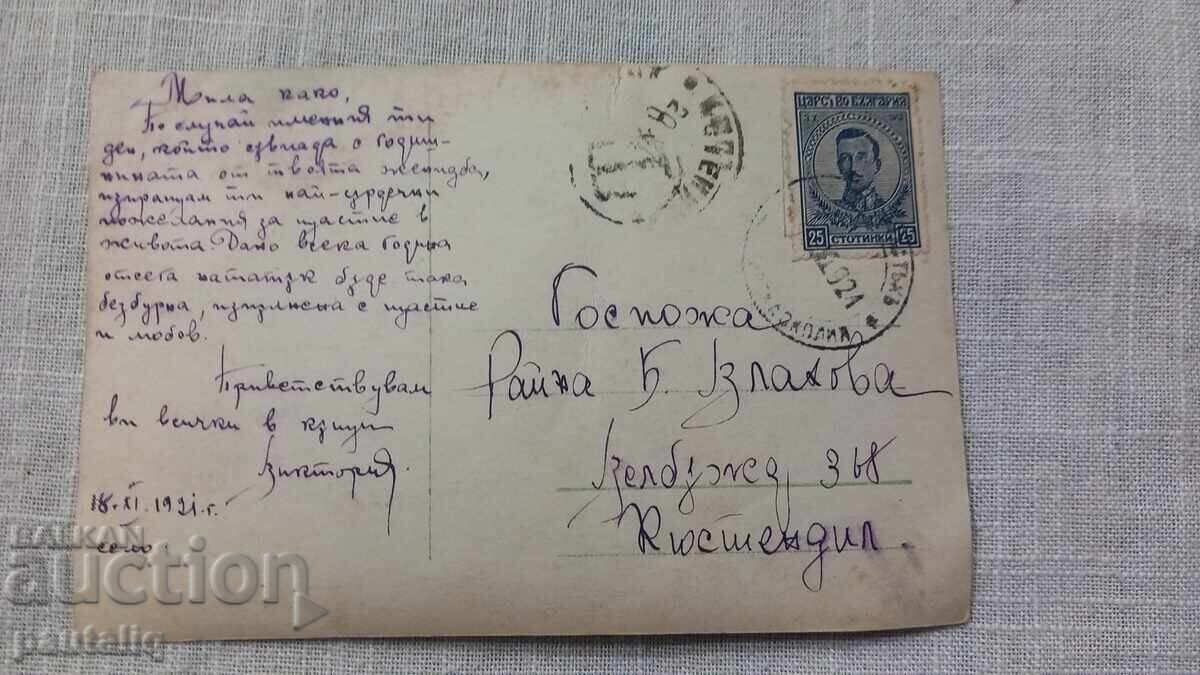 Мила како,
По случай имения ти
ден, който съвпада с годиш-
нината от твоята женидба,
изпращам ти най-сърдечни
пожелания за щастие в
живота Дано всека година
отсега нататък бъде така
безбурна, изпълнена с щастие
и любов.
Приветствувам
ви всички в къщи
Виктория.
18.XI.1921.г.
село
ЦАРСТВО БЪЛГАРИЯ
25 СТОТИНКИ 25
921
Госпожа
Райна Б. Влахова
Велбъжд 38
Кюстендил.
BALKAN
auction
pautaliq